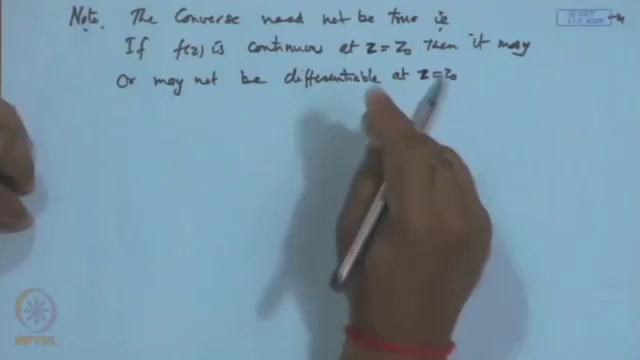 Note. The Converse need not be true ie
If f(z) is continuous at z = z₀ then it may
Or may not be differentiable at z = z₀
I.I.T. KGP
NPTEL